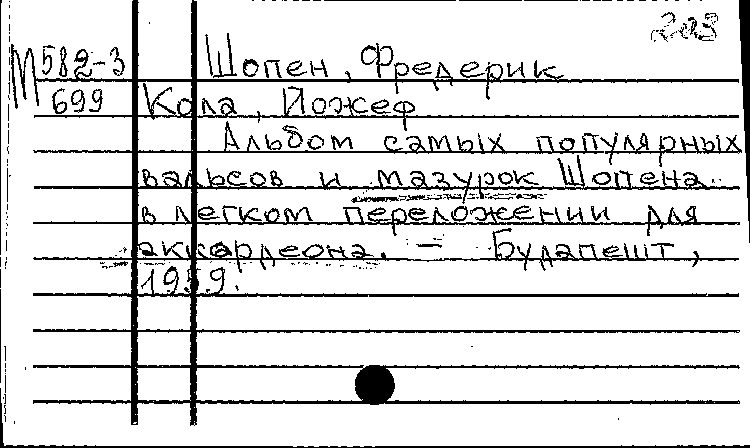 203
М 582-3 Шопен, Фредерик
699 Кола, Йожеф
Альбом самых популярных
вальсов и мазурок Шопена
в легком переложении для
аккордеона. — Будапешт,
1959.